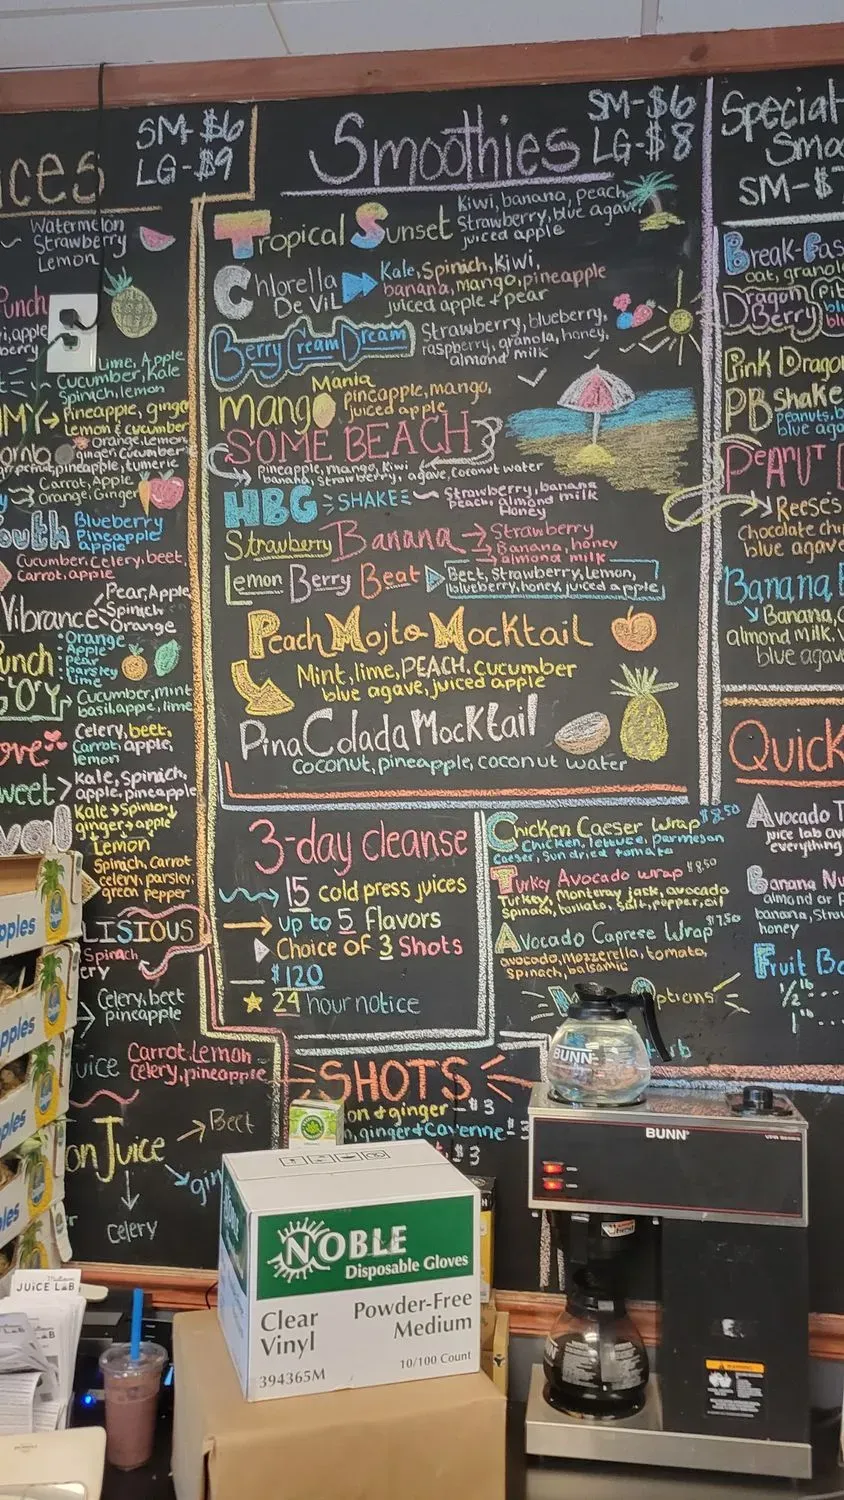 ices
SM-$6
LG-$9
Watermelon
Strawberry
Lemon
Punch
wi, apple
berry
Lime, Apple
Cucumber, Kale
Spinich, lemon
MY→ Pineapple, ginger
Lemon & cucumber
Orange, Lemon,
ginger, cucumber
pineapple, tumeric
Carrot, Apple
Orange, Ginger
outh Blueberry
Pineapple
apple
Cucumber, Celery, beet,
Carrot, apple
Vibrance
Pear, Apple
Spinich
Orange
unch
Orange
Apple
Pear
parsley
Lime
Cucumber, mint
basil, apple, lime
ove
Celery, beet,
Carrot, apple,
lemon
weet > Kale, Spinich,
apple, pineapple
Kale → Spinich
ginger → apple
Lemon
Spinich, Carrot
celery, parsley,
green pepper
LISIOUS
Spinach
ery
Celery, beet
pineapple
uice Carrot, Lemon
Celery, pineapple
on Juice → Beet
gin
Celery
Smoothies
SM-$6
LG-$8
Tropical Sunset
Kiwi, banana, peach,
Strawberry, blue agave,
juiced apple
Chlorella
De Vil
Kale, Spinich, Kiwi,
banana, mango, pineapple
juiced apple + pear
Berry Cream Dream
Strawberry, blueberry,
raspberry, granola, honey,
almond milk
Mango Mania
pineapple, mango,
juiced apple
SOME BEACH
pineapple, mango, Kiwi
banana, Strawberry, agave, Coconut water
HBG SHAKE
Strawberry, banana
Peach, almond milk
Honey
Strawberry Banana → Strawberry
Banana, honey
almond milk
Lemon Berry Beat
Beet, Strawberry, Lemon,
blueberry, honey, juiced apple
Peach Mojto Mocktail
Mint, lime, PEACH, cucumber
blue agave, juiced apple
Pina Colada Mocktail
coconut, pineapple, coconut water
3-day cleanse
15 cold press juices
up to 5 Flavors
Choice of 3 Shots
$120
24 hour notice
Chicken Caeser Wrap $8.50
Chicken, lettuce, parmesan
caeser, sundried tomato
Turkey Avocado wrap $8.50
Turkey, Monteray jack, avocado
Spinach, tomato, Salt, pepper, oil
Avocado Caprese Wrap $7.50
avocado, Mozzerella, tomato,
Spinach, balsamic
Options
rb
SHOTS
on & ginger - $3
, ginger & Cayenne - $3
$3
Special
Smoo
SM-$
Break-Fas
oat, granola
Dragon
Berry
Pink Dragon
PB Shake
Peanuts, b
blue aga
PEANUT
Reese's
Chocolate chi
blue agave
Banana
Banana, C
almond milk,
blue agave
Quick
Avocado T
juice lab av
everything
Banana Nu
almond or p
banana, Stra
honey
Fruit Bo
1/2 lb
1 lb
pples
apples
JUICE LAB
NOBLE
Disposable Gloves
Clear
Vinyl
Powder-Free
Medium
394365M
10/100 Count
BUNN
BUNN
VPR SERIES
WARNING